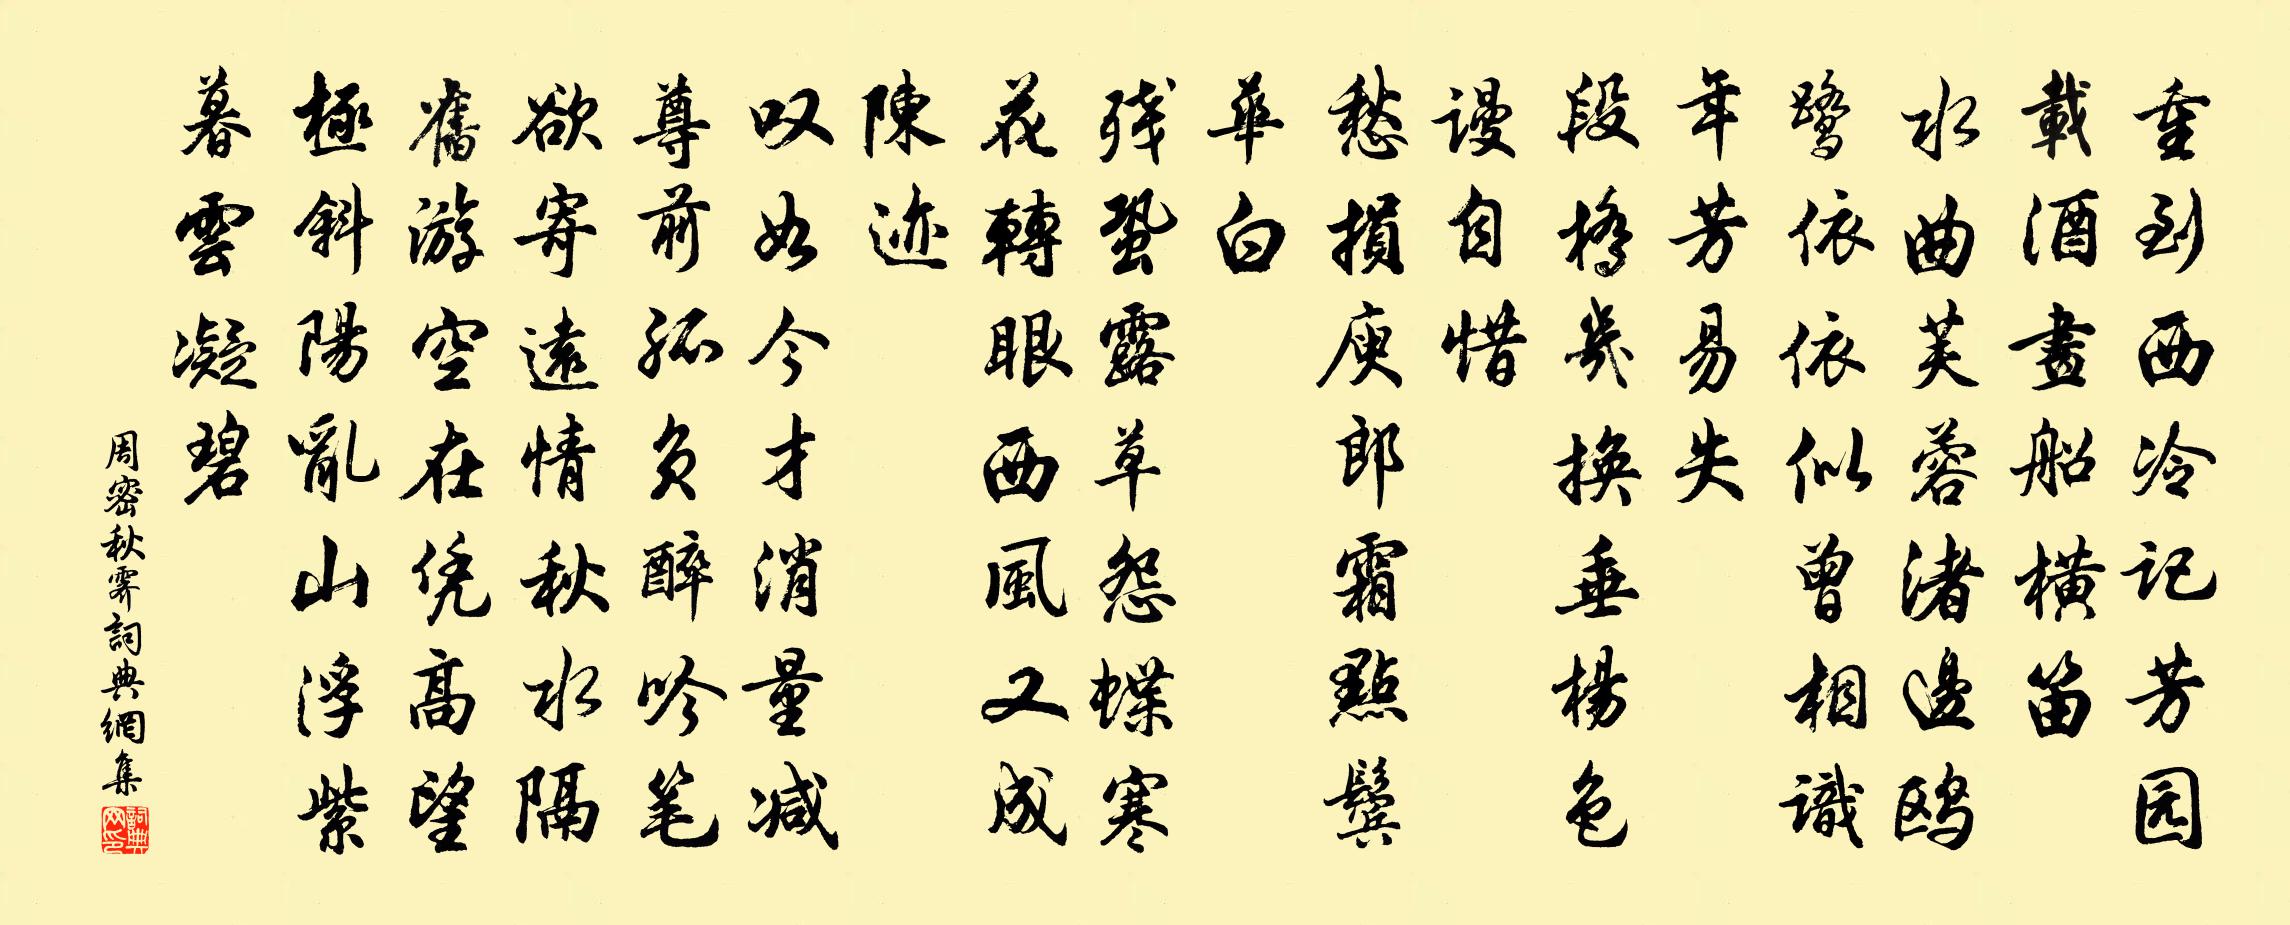 重到西泠记芳园
載酒畫船横笛
水曲芙蓉渚邊鸥
鹭依依似曾相識
年芳易失
段橋幾换垂楊色
谩自惜
愁損庾郎霜點鬓
華白
残蛩露草怨蝶寒
花轉眼西風又成
陳迹
叹如今才消量减
尊前孤负醉吟笔
欲寄遠情秋水隔
舊游空在凭高望
極斜陽亂山浮紫
暮雲凝碧
周密秋霁詞典網集
詞典网印